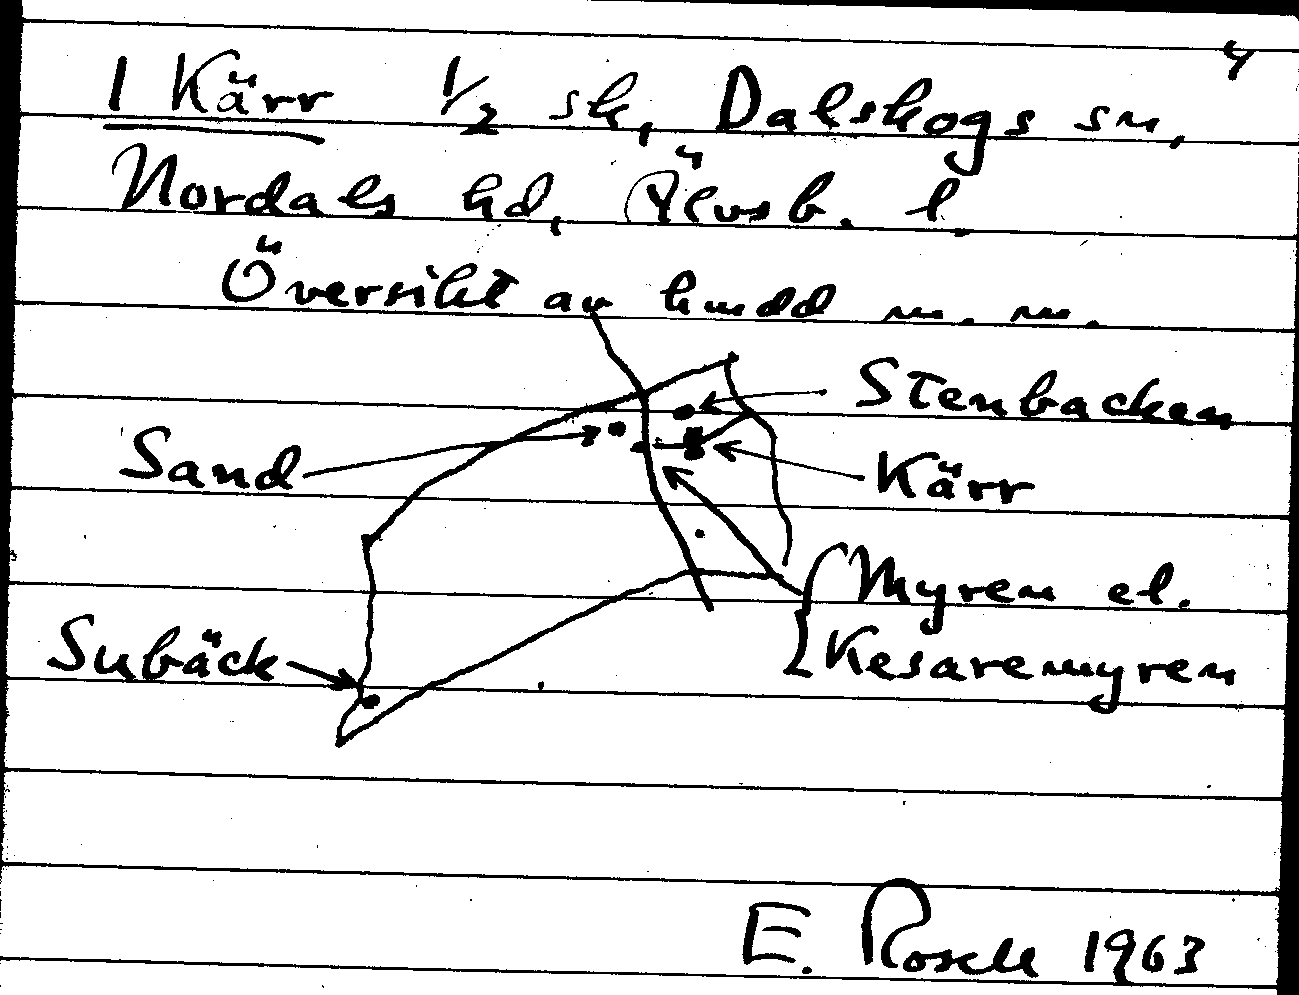 4
1 Kärr 1/2 sk, Dalskogs sn,
Nordals hd, Älvsb. l.
Översikt av huvudd m. m.
Stenbacken
Sand
Kärr
Myren el.
Kesaremyren
Subäck
E. Rosell 1963